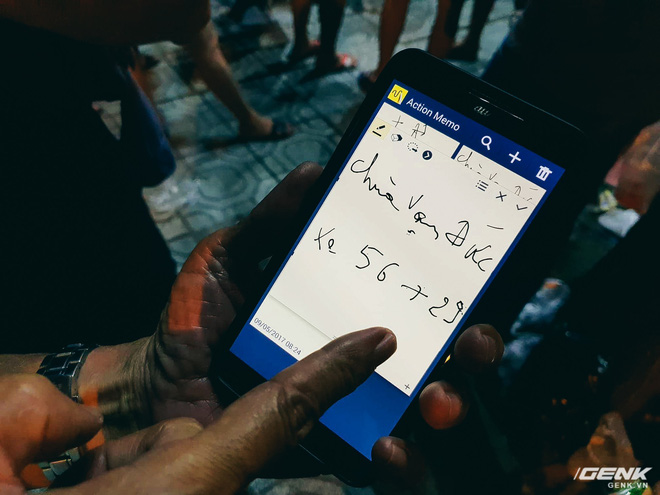 au
Action Memo
Chùa Vạn Đức
Xe 56 + 29
09/05/2017 08:24
GENK
GENK.VN